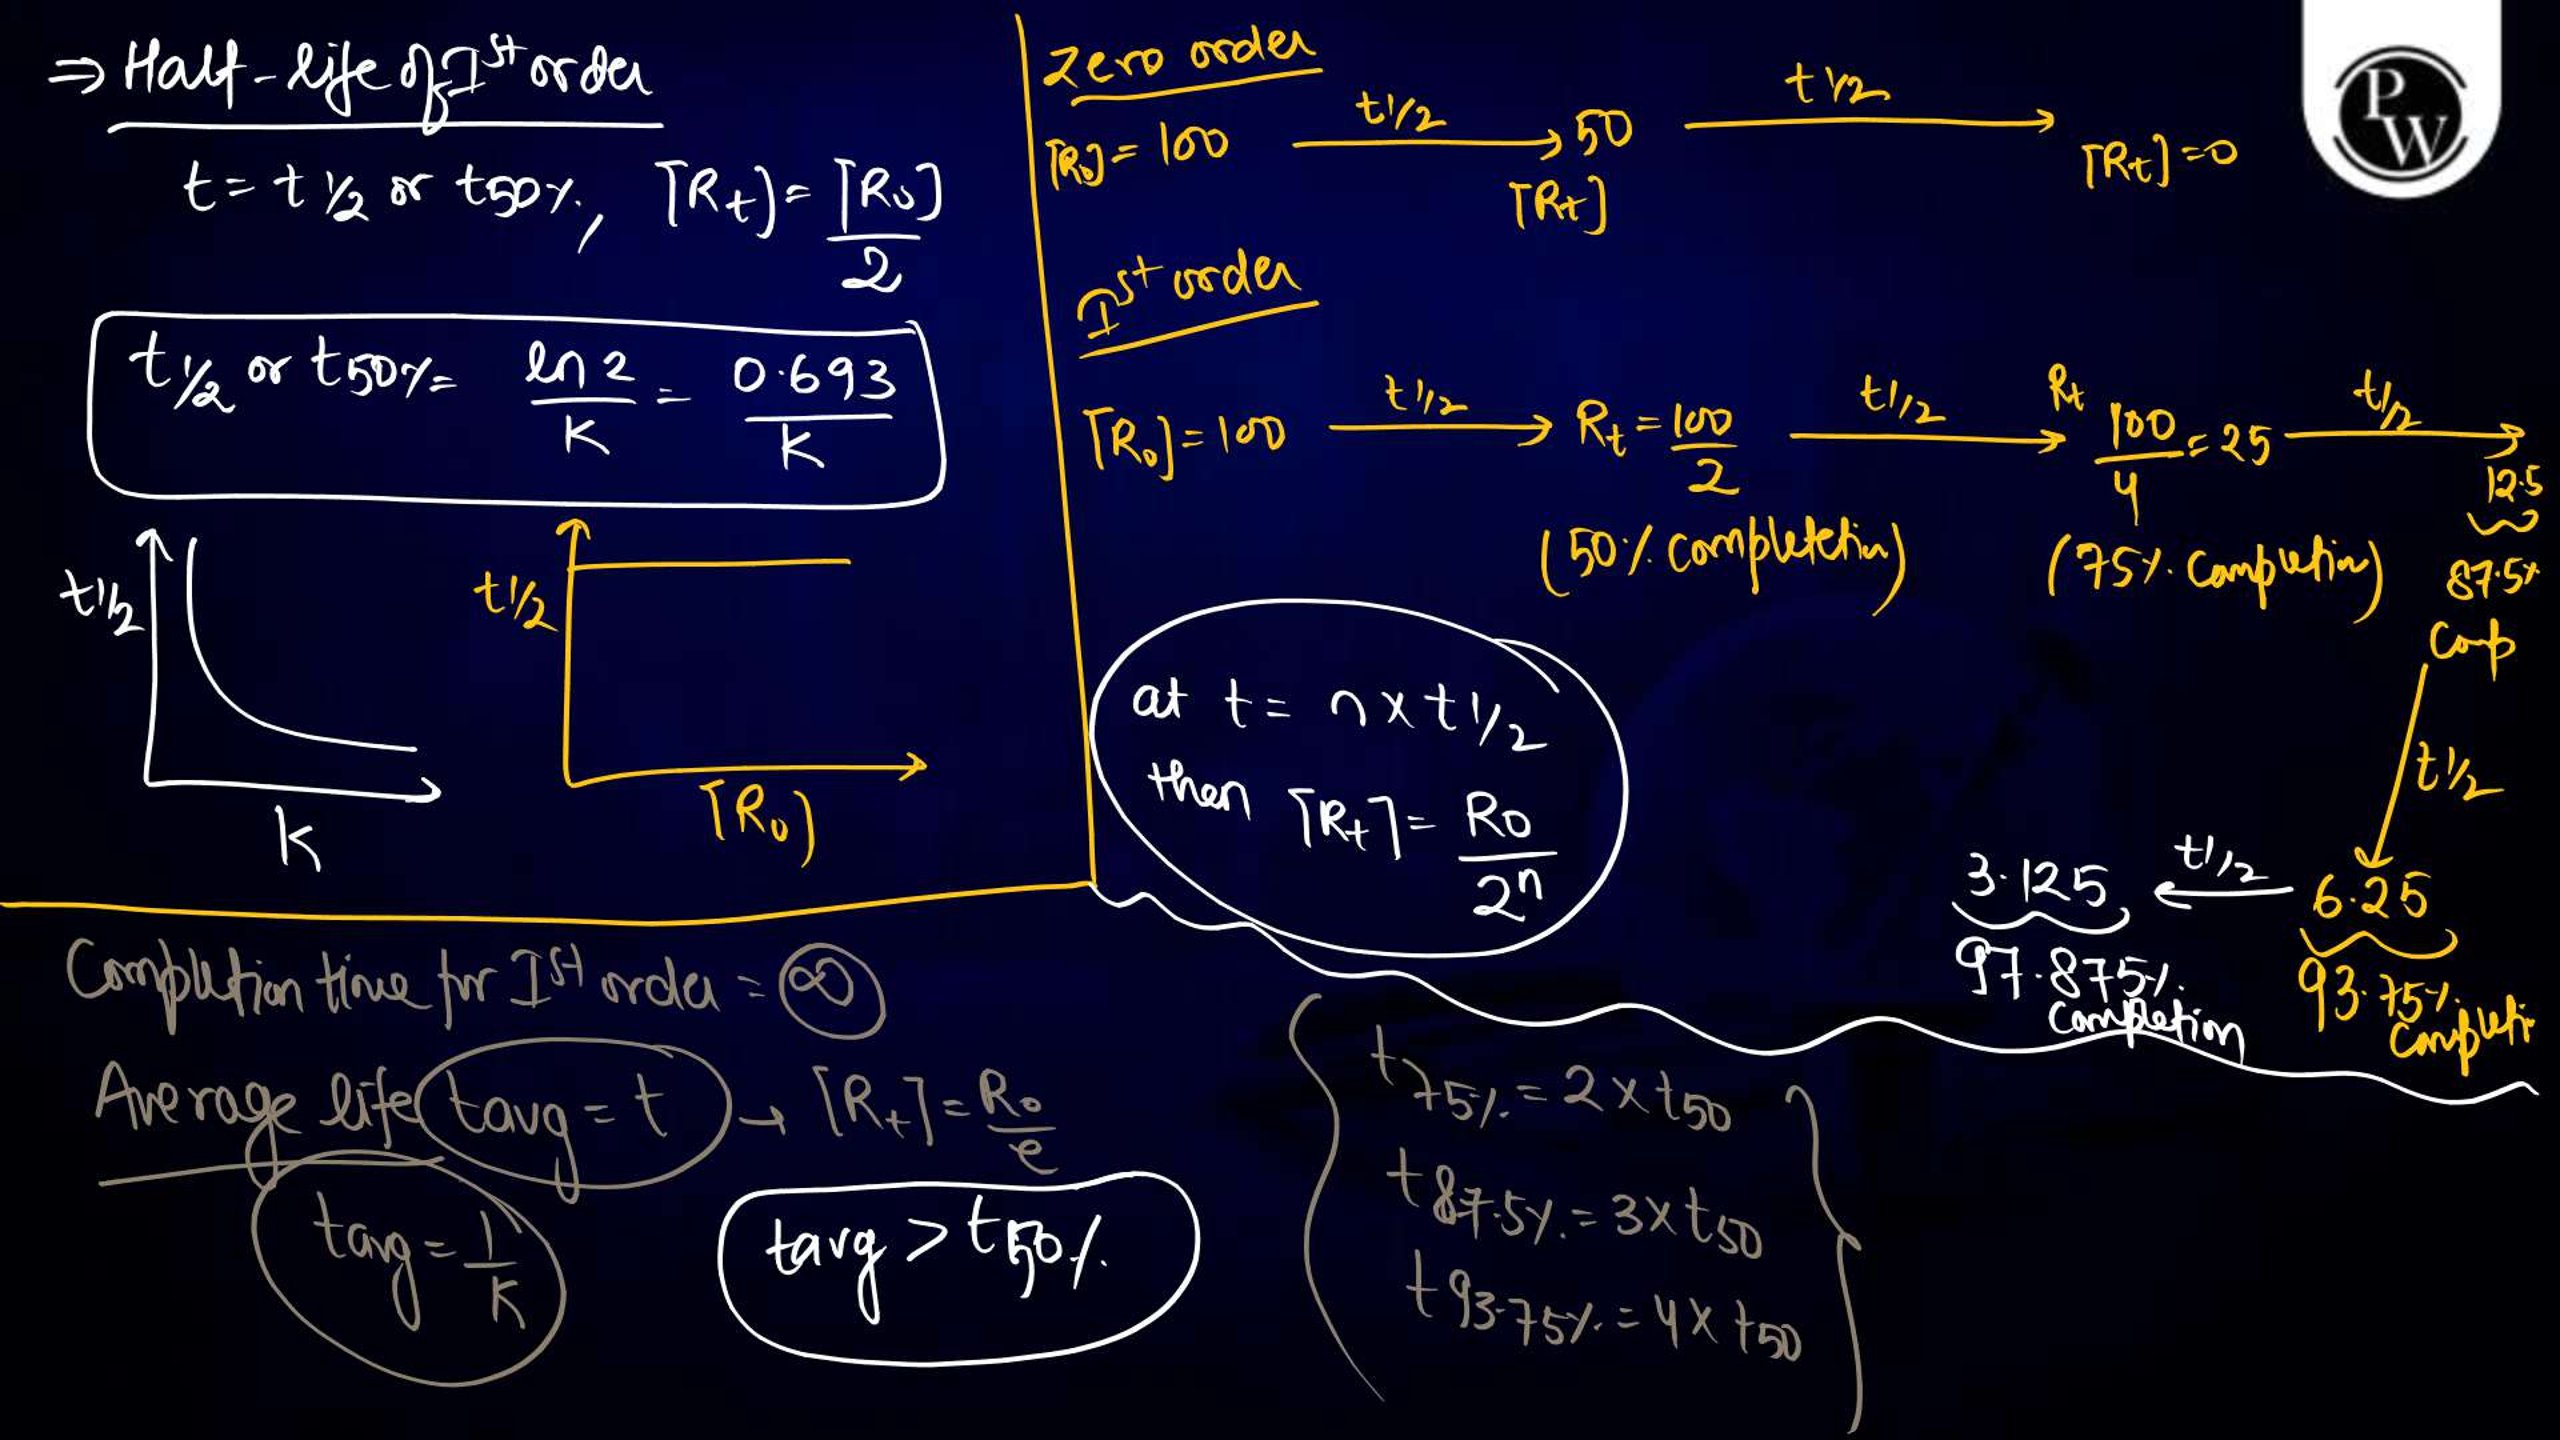 ⇒ Half-life of Ist order
t = t 1/2 or t50%, [Rt] = [R0]/2
t1/2 or t50% = ln 2/K = 0.693/K
t1/2
K
t1/2
[R0]
Zero order
[R0] = 100 —t1/2→ 50 —t1/2→ [Rt] = 0
[Rt]
Ist order
[R0] = 100 —t1/2→ Rt = 100/2 —t1/2→ Rt 100/4 = 25 —t1/2→ 12.5
(50% Completetion) (75% Completion) 87.5%
Comp
t1/2
6.25
93.75%
Completi
t1/2
3.125
97.875%
Completion
at t = n x t 1/2
then [Rt] = R0/2^n
Completion time for Ist order = ∞
Average life tavg = t → [Rt] = R0/e
tavg = 1/K
tavg > t50%
t75% = 2 x t50
t87.5% = 3 x t50
t93.75% = 4 x t50
PW